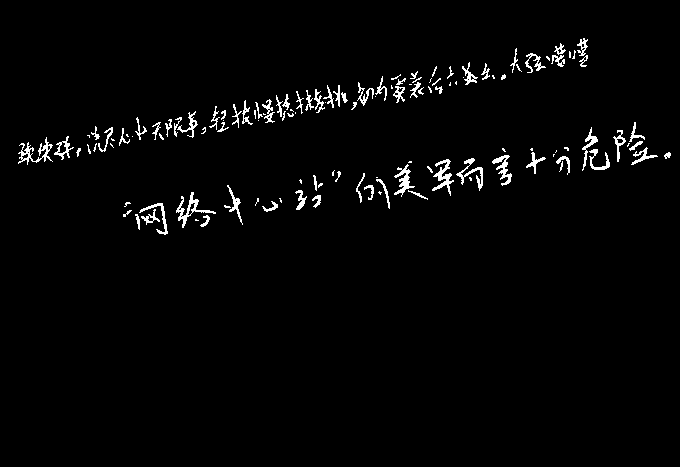 续续弹，说尽心中无限事，轻拢慢捻抹复挑，初为霓裳后六幺。大弦嘈嘈
“网络中心站”的美军而言十分危险。